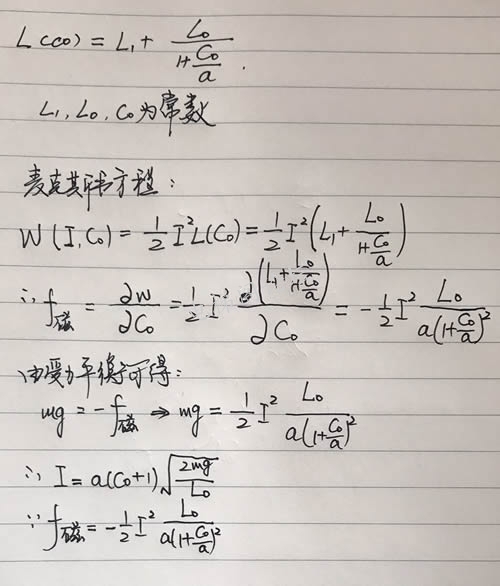 L(C0) = L₁ + L₀/(1+C₀/a).
L₁, L₀, C₀为常数
麦克斯韦方程：
W(I,C₀) = 1/2 I²L(C₀) = 1/2 I²(L₁ + L₀/(1+C₀/a))
∴ f磁 = ∂W/∂C₀ = 1/2 I² ∂(L₁+L₀/(1+C₀/a))/∂C₀ = -1/2 I² L₀/(a(1+C₀/a)²)
由受力平衡可得：
mg = -f磁 ⇒ mg = 1/2 I² L₀/(a(1+C₀/a)²)
∴ I = a(C₀+1)√(2mg/L₀)
∵ f磁 = -1/2 I² L₀/(a(1+C₀/a)²)